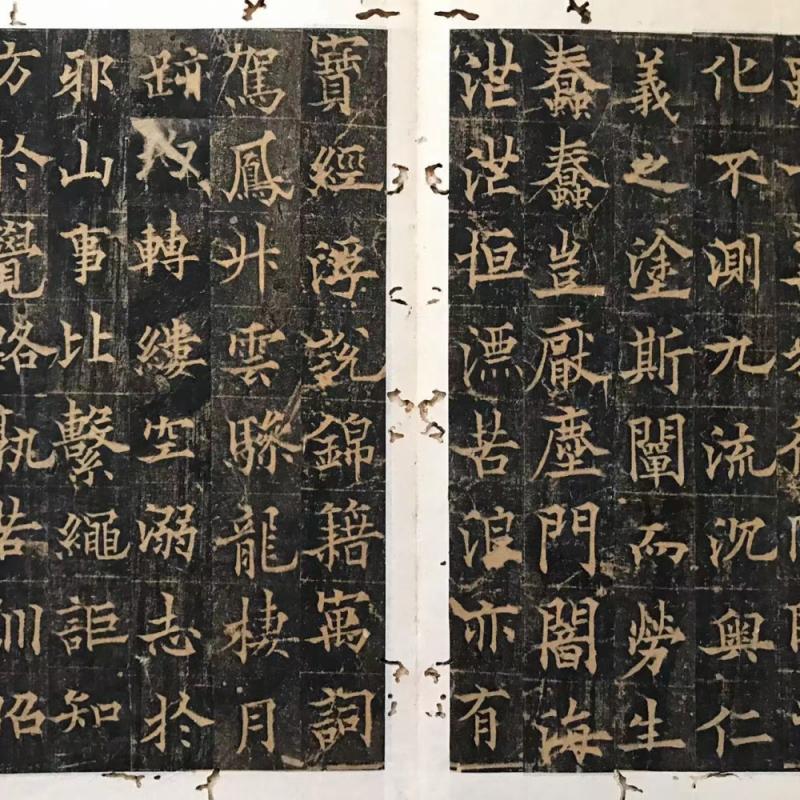 化不測九流沉奧仁
義之塗斯闡而勞生
蠢蠢豈厭塵門闇海
茫茫恒漂苦浪亦有
寶經浮說錦籍寓詞
駕鳳升雲驂龍棲月
跡轉縷空溺志於
邪山事比繫繩詎知
方於覺路孰若訓